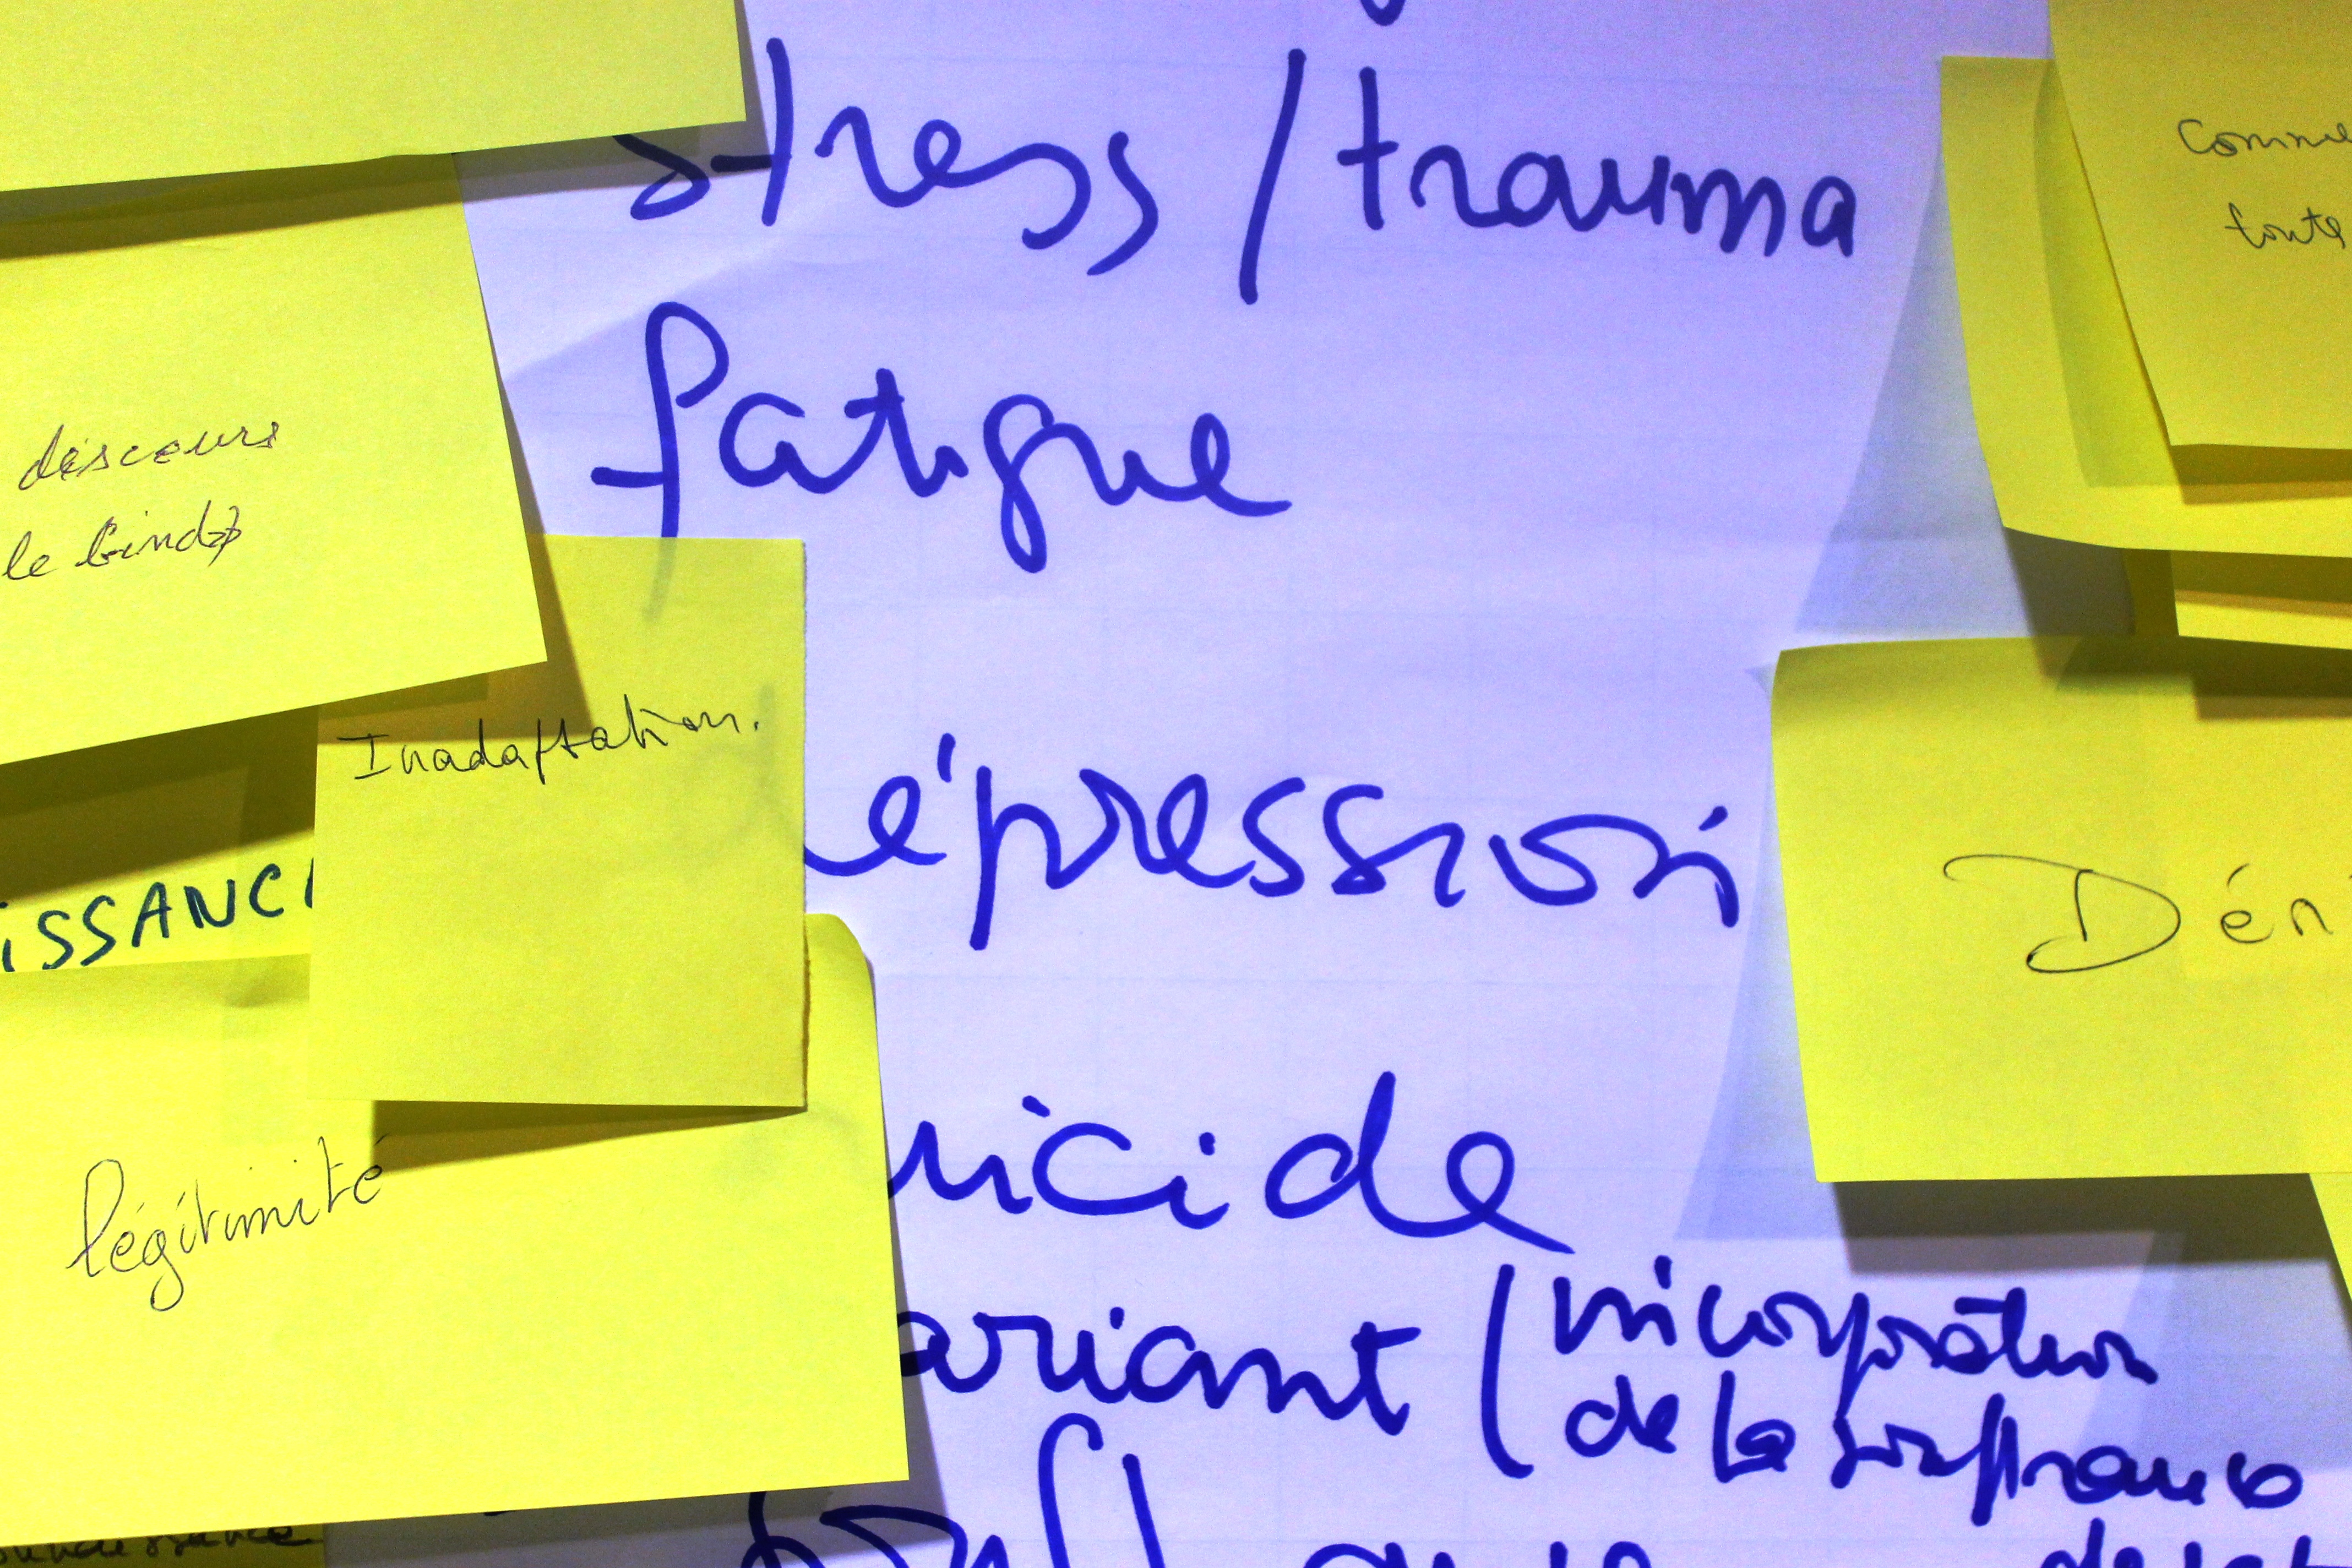 stress / trauma
fatigue
épression
uicide
ariant / incorporation
de la souffrance
discours
le bind
Inadaptation.
ISSANC
légitimité
toute
Dén